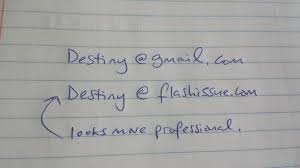 Destiny @gmail.com
Destiny @ flashissue.com
looks more professional.